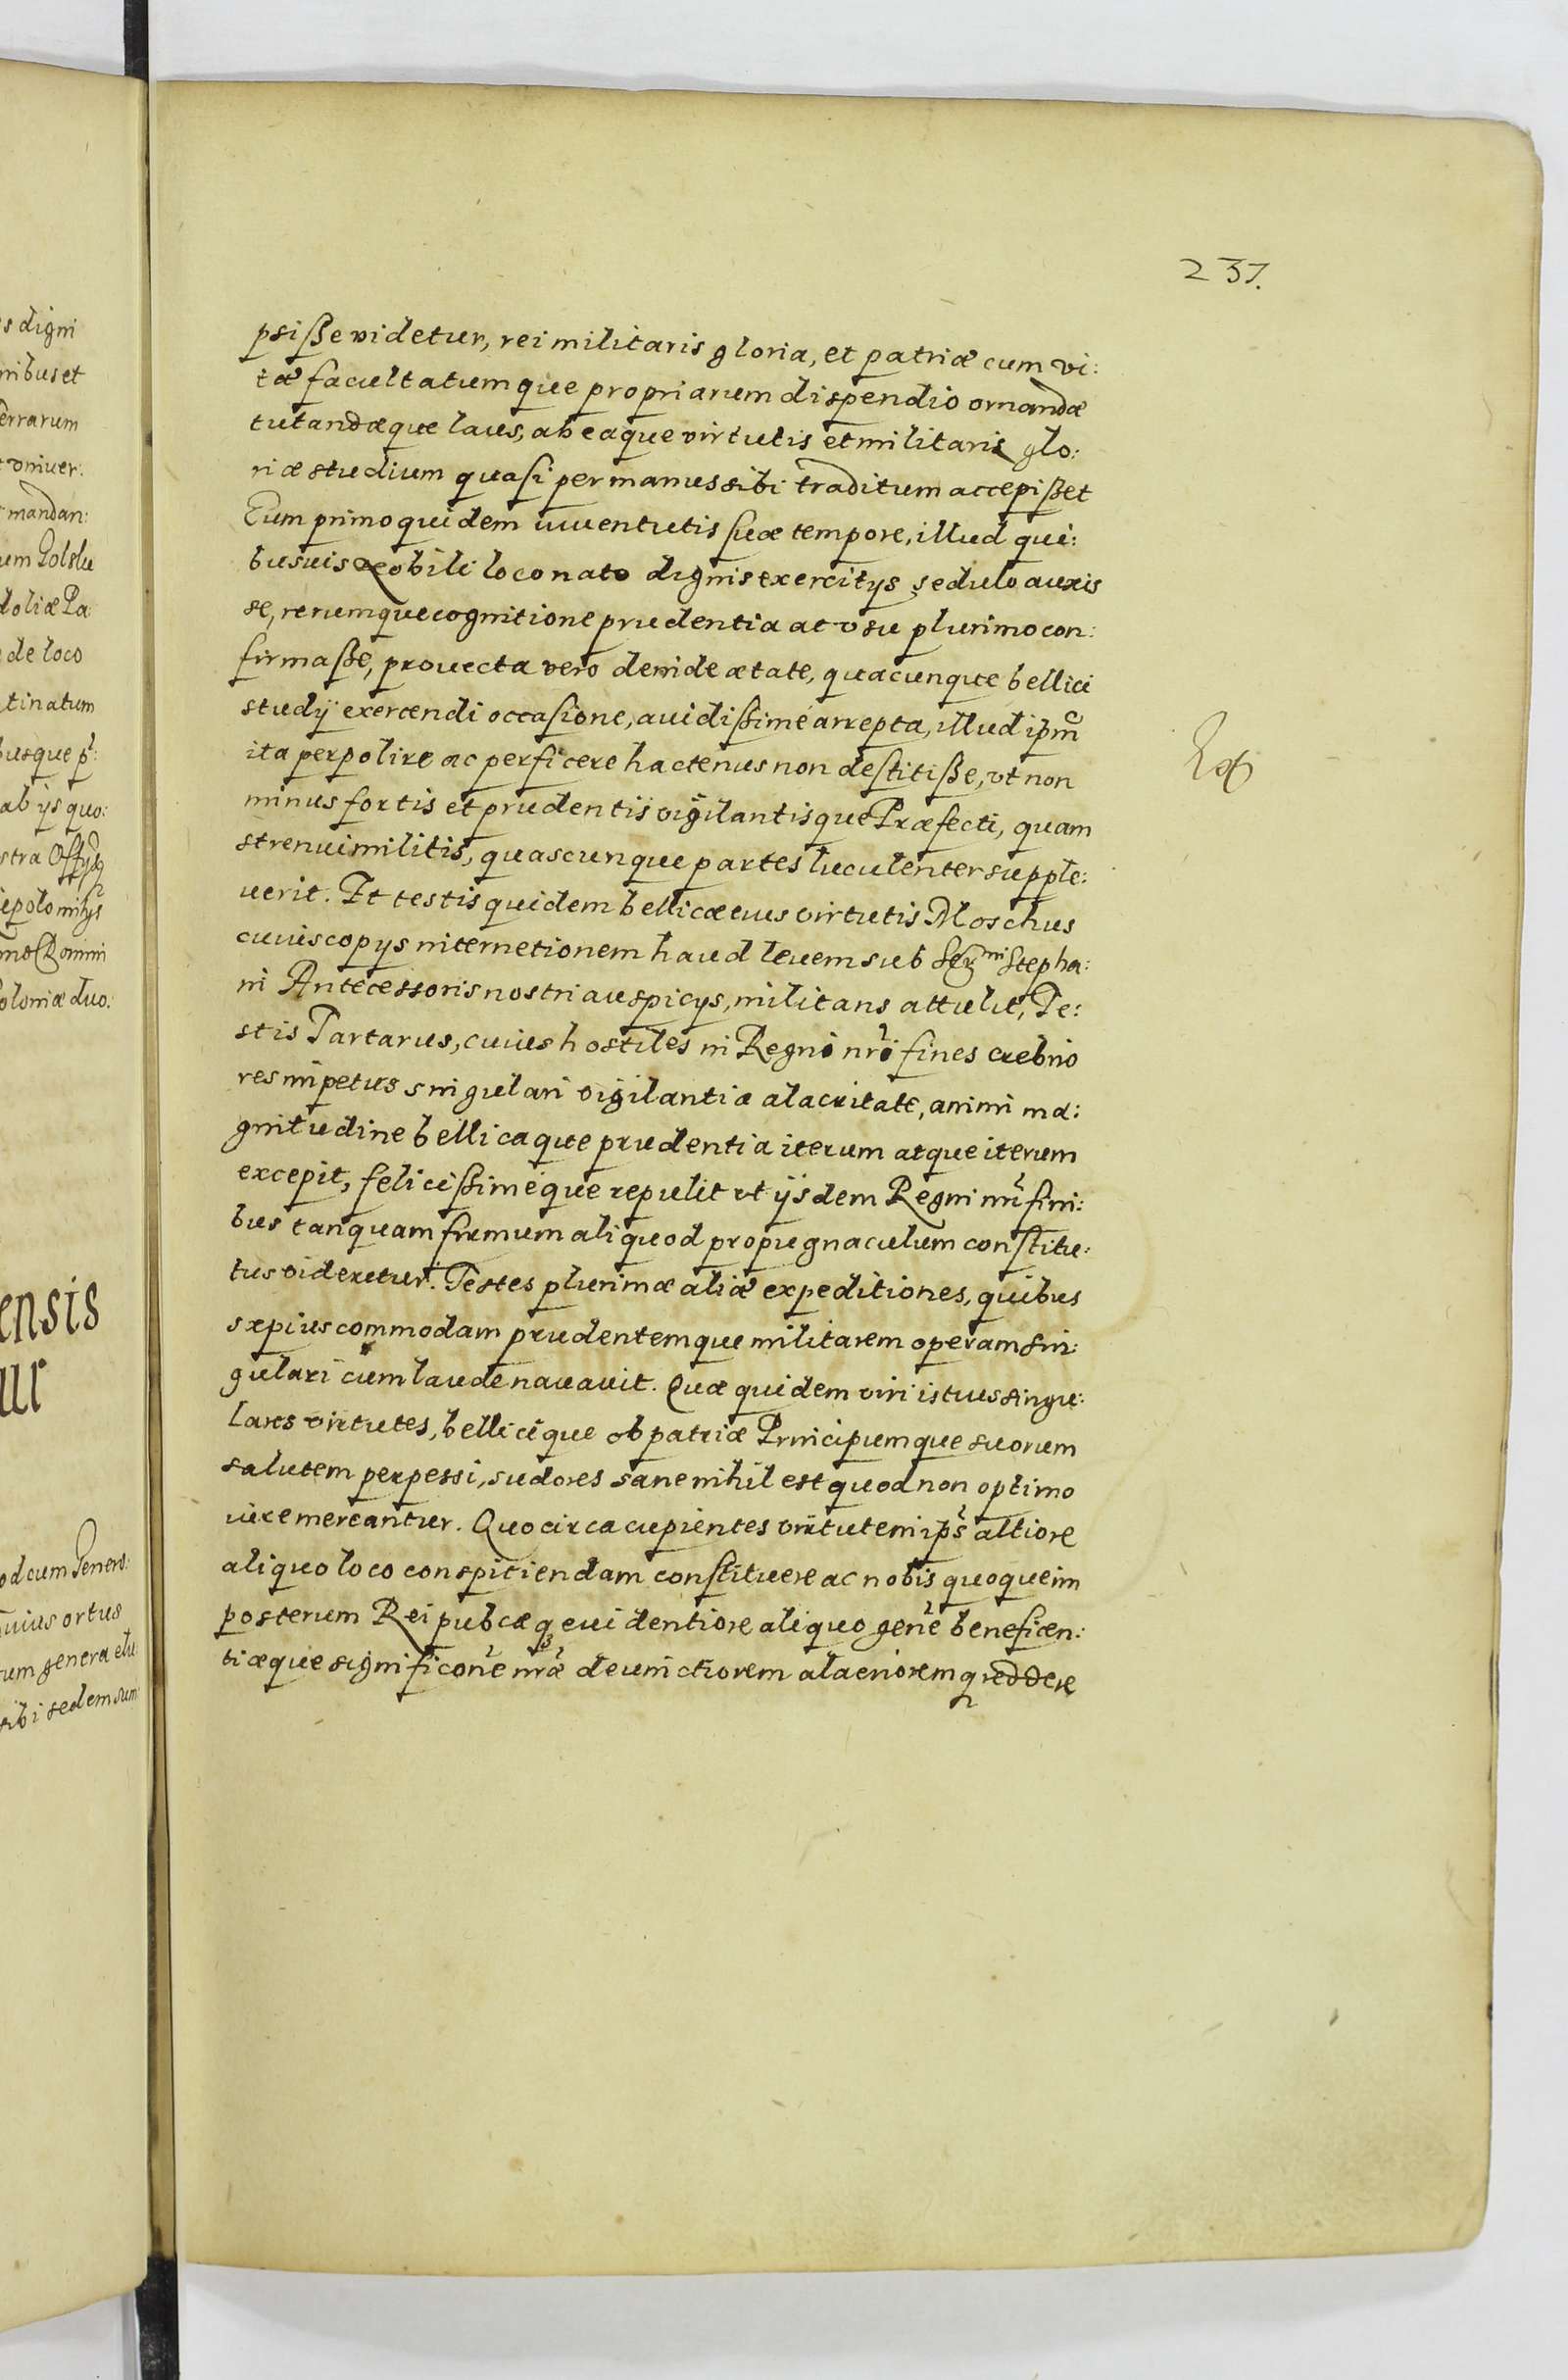 237.
psiße videtur, rei militaris gloria, et patriæ cum vi:
tæ facultatumque propriarum dispendio ornandæ
tutandæque laus, ab eaque virtutis et militaris glo:
riæ studium quasi per manus sibi traditum accepißet
Eum primo quidem iuuentutis suæ tempore, illud qui:
busuis nobili loco nato dignis exercitys sedulo auxis
se, rerumque cognitione prudentia ac vsu plurimo con:
firmaße, prouecta vero deinde ætate, quacunque bellici
study exercendi occasione, auidißimé arrepta, illud ipm̃
ita perpolire ac perficere hactenus non destitiße, vt non
minus fortis et prudentis vigilantisque Præfecti, quam
strenui militis, quascunque partes luculenter supple:
uerit. Et testis quidem bellicæ eius virtutis Moschus
cuius copys internetionem haud leuem sub Ser̃mi Stepha:
ni Antecessoris nostri auspicys, militans attulit, Te:
stis Tartarus, cuius hostiles in Regni nr̃i fines crebrio
res impetus singulari vigilantia alacritate, animi ma:
gnitudine bellicaque prudentia iterum atque iterum
excepit, felicißiméque repulit vt ijsdem Regni nr̃i fini:
bus tanquam firmum aliquod propugnaculum constitu:
tus videretur. Testes plurimæ aliæ expeditiones, quibus
sæpius commodam prudentemque militarem operam sin:
gulari cum laude nauauit. Quæ quidem viri istius singu:
lares virtutes, bellicique ob patriæ Principumque suorum
salutem perpessi, sudores sane nihil est quod non optimo
iure mereantur. Quocirca cupientes virtutem ips̃ altiore
aliquo loco conspiciendam constituere ac nobis quoque im
posterum Rei pubcæq euidentiore aliquo gen̄e beneficen:
tiæque significoñe nr̃æ deuinctiorem alacrioremq reddere
s digni
nibus et
errarum
vniuer:
mandan:
um Golslu
doliæ Pa
de loco
tinatum
busque p:
ab ijs quo:
oloniæ duo:
ensis
ur
od cum Generos:
uius ortus
um genera elu
sibi sedem sum